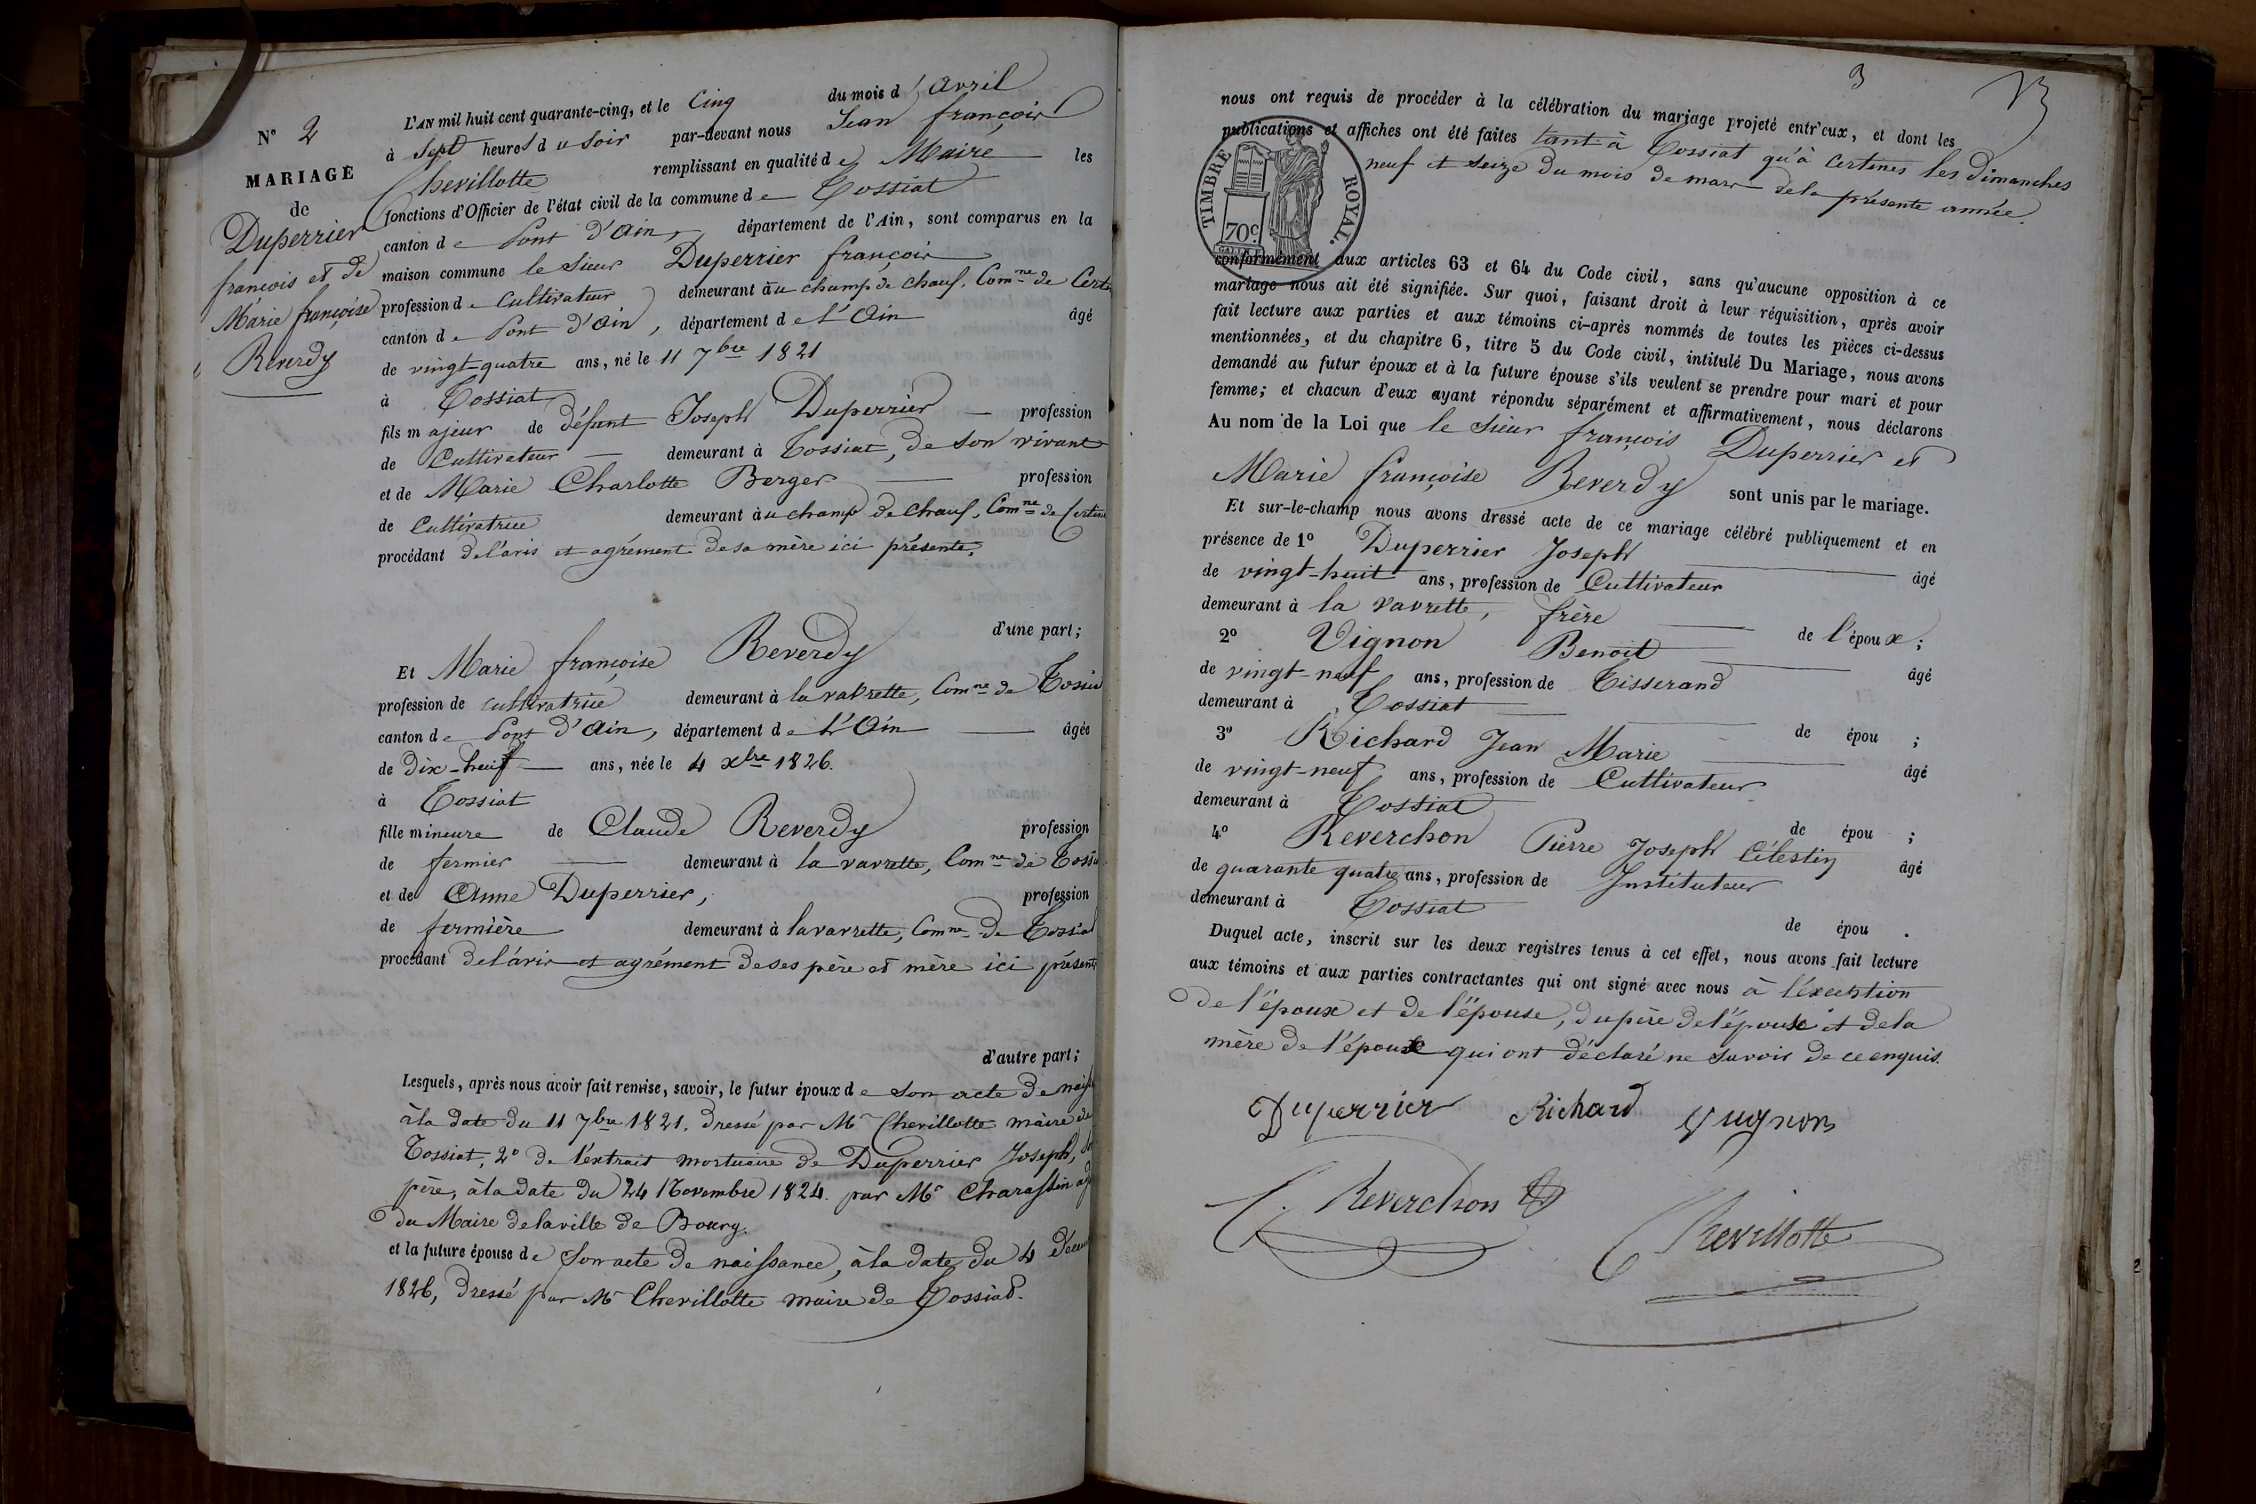 N° 2
MARIAGE
de
Duperrier
françois et de
Marie françoise
Reverdy
L'AN mil huit cent quarante-cinq, et le Cinq du mois d'avril
à sept heures du soir par-devant nous Jean françois
Chevillotte remplissant en qualité de Maire les
fonctions d'Officier de l'état civil de la commune de Tossiat
canton de Pont d'Ain, département de l'Ain, sont comparus en la
maison commune le sieur Duperrier françois
profession de Cultivateur demeurant au champ de chauf. Com.ne de Certi
canton de Pont d'Ain, département de l'Ain âgé
de vingt-quatre ans, né le 11 7bre 1821
à Tossiat
fils majeur de défunt Joseph Duperrier profession
de Cultivateur demeurant à Tossiat, de son vivant
et de Marie Charlotte Berger profession
de Cultivatrice demeurant au champ de chauf. Com.ne de Certine
procédant de l'avis et agrément de sa mère ici présente.
d'une part;
Et Marie françoise Reverdy
profession de cultivatrice demeurant à la vavrette, Com.ne de Tossia
canton de Pont d'Ain, département de l'Ain âgée
de dix-huit ans, née le 4 xbre 1826.
à Tossiat
fille mineure de Claude Reverdy profession
de fermier demeurant à la vavrette, Com.ne de Tossia
et de Anne Duperrier, profession
de fermière demeurant à la vavrette, Com.ne de Tossiat
procédant de l'avis et agrément de ses père et mère ici présents
d'autre part;
Lesquels, après nous avoir fait remise, savoir, le futur époux de son acte de naiss
à la date du 11 7bre 1821. dressé par Mr Chevillotte maire de
Tossiat, 2° de l'extrait mortuaire de Duperrier Joseph, so
père, à la date du 24 Novembre 1824. par Mr Charassin adj
du Maire de la ville de Bourg.
et la future épouse de son acte de naissance, à la date du 4 décem
1826, dressé par Mr Chevillotte maire de Tossiat.
3
nous ont requis de procéder à la célébration du mariage projeté entr'eux, et dont les
publications et affiches ont été faites tant à Tossiat qu'à Certines les dimanches
neuf et seize du mois de mars de la présente année.
TIMBRE ROYAL.
70c.
conformément aux articles 63 et 64 du Code civil, sans qu'aucune opposition à ce
mariage nous ait été signifiée. Sur quoi, faisant droit à leur réquisition, après avoir
fait lecture aux parties et aux témoins ci-après nommés de toutes les pièces ci-dessus
mentionnées, et du chapitre 6, titre 5 du Code civil, intitulé Du Mariage, nous avons
demandé au futur époux et à la future épouse s'ils veulent se prendre pour mari et pour
femme; et chacun d'eux ayant répondu séparément et affirmativement, nous déclarons
Au nom de la Loi que le sieur françois Duperrier et
Marie françoise Reverdy sont unis par le mariage.
Et sur-le-champ nous avons dressé acte de ce mariage célébré publiquement et en
présence de 1° Duperrier Joseph âgé
de vingt-huit ans, profession de Cultivateur
demeurant à la vavrette, frère de l'époux;
2° Vignon Benoit âgé
de vingt-neuf ans, profession de Tisserand
demeurant à Tossiat de épou ;
3° Richard Jean Marie âgé
de vingt-neuf ans, profession de Cultivateur
demeurant à Tossiat de épou ;
4° Reverchon Pierre Joseph Célestin âgé
de quarante quatre ans, profession de Instituteur
demeurant à Tossiat de épou .
Duquel acte, inscrit sur les deux registres tenus à cet effet, nous avons fait lecture
aux témoins et aux parties contractantes qui ont signé avec nous à l'exception
de l'époux et de l'épouse, du père de l'épouse et de la
mère de l'époux qui ont déclaré ne savoir de ce enquis.
Duperrier Richard Vugnon
Reverchon
Chevillotte